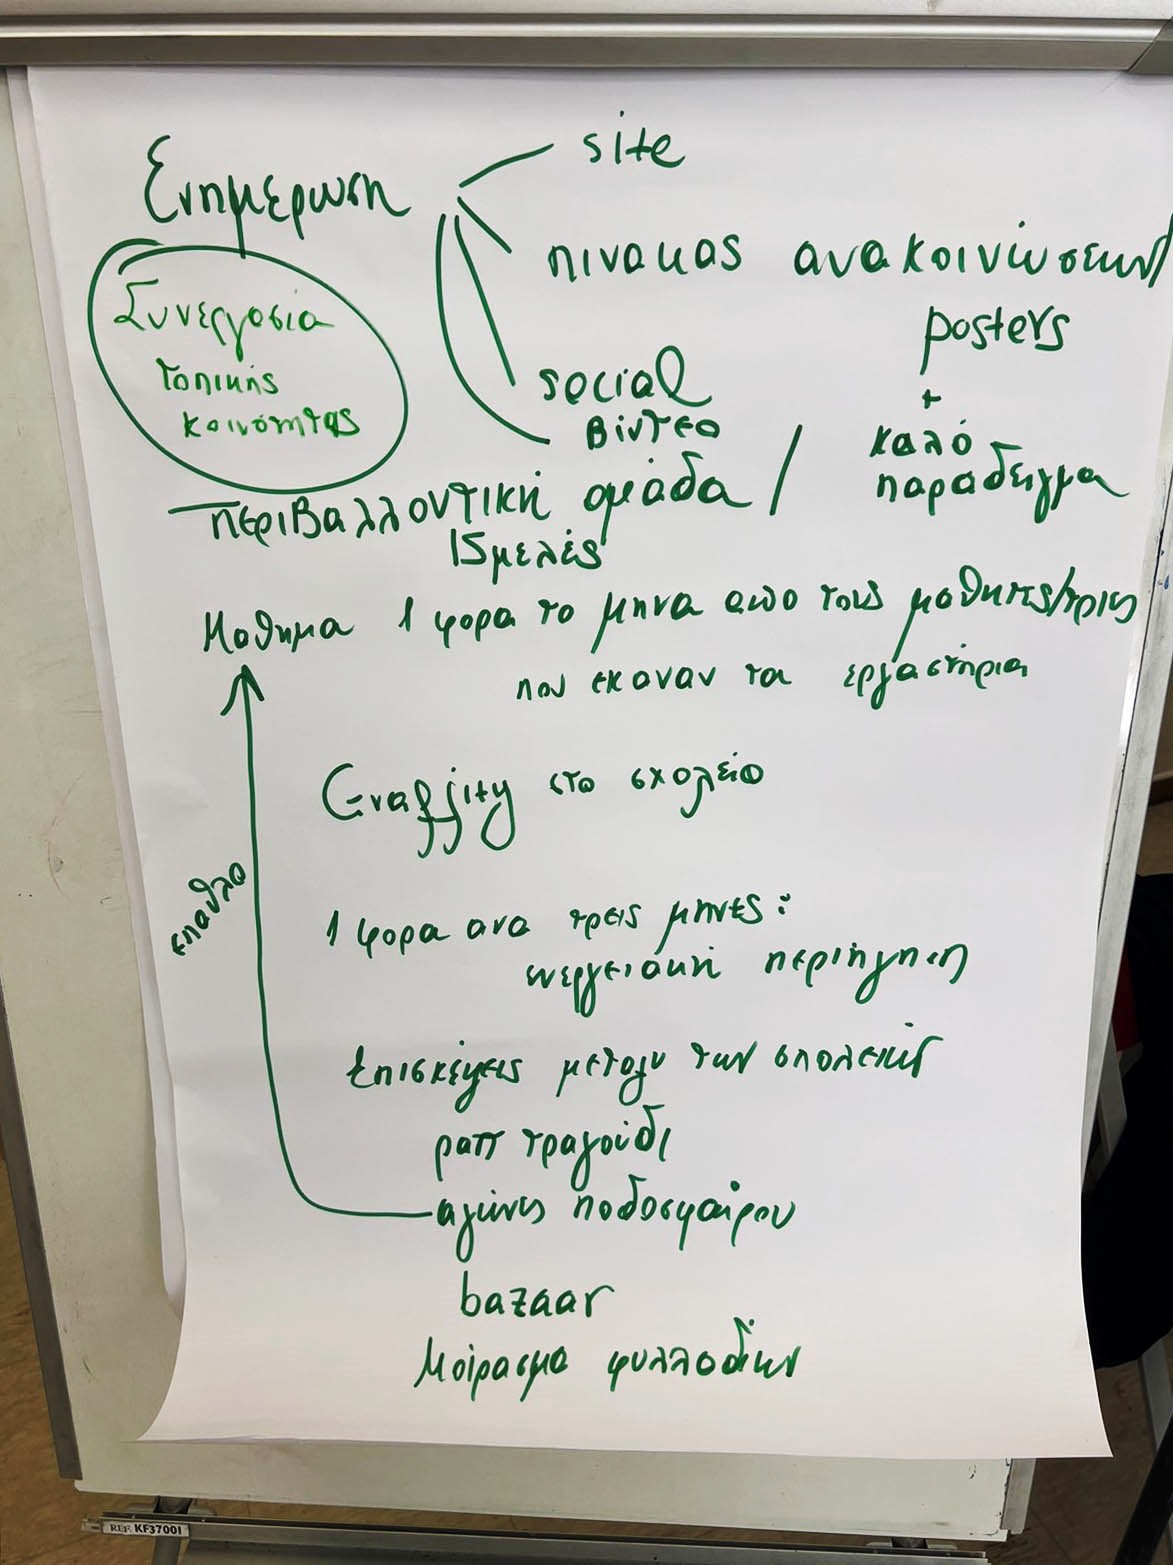 Ενημέρωση
site
πινακας ανακοινώσεων
posters
+
καλό
παράδειγμα
social
βίντεο
Συνεργασία
τοπικής
κοινότητας
Περιβαλλοντική ομάδα /
15μελές
Μαθημα 1 φορα το μηνα απο τους μαθητες/τριες
που εκαναν τα εργαστήρια
Graffity στο σχολείο
επαθλο
1 φορα ανα τρεις μηνες:
ενεργειακή περιήγηση
Επισκέψεις μεταξυ των σχολείων
ραπ τραγούδι
αγώνες ποδοσφαίρου
bazaar
Μοίρασμα φυλλαδίων
REF. KF37001